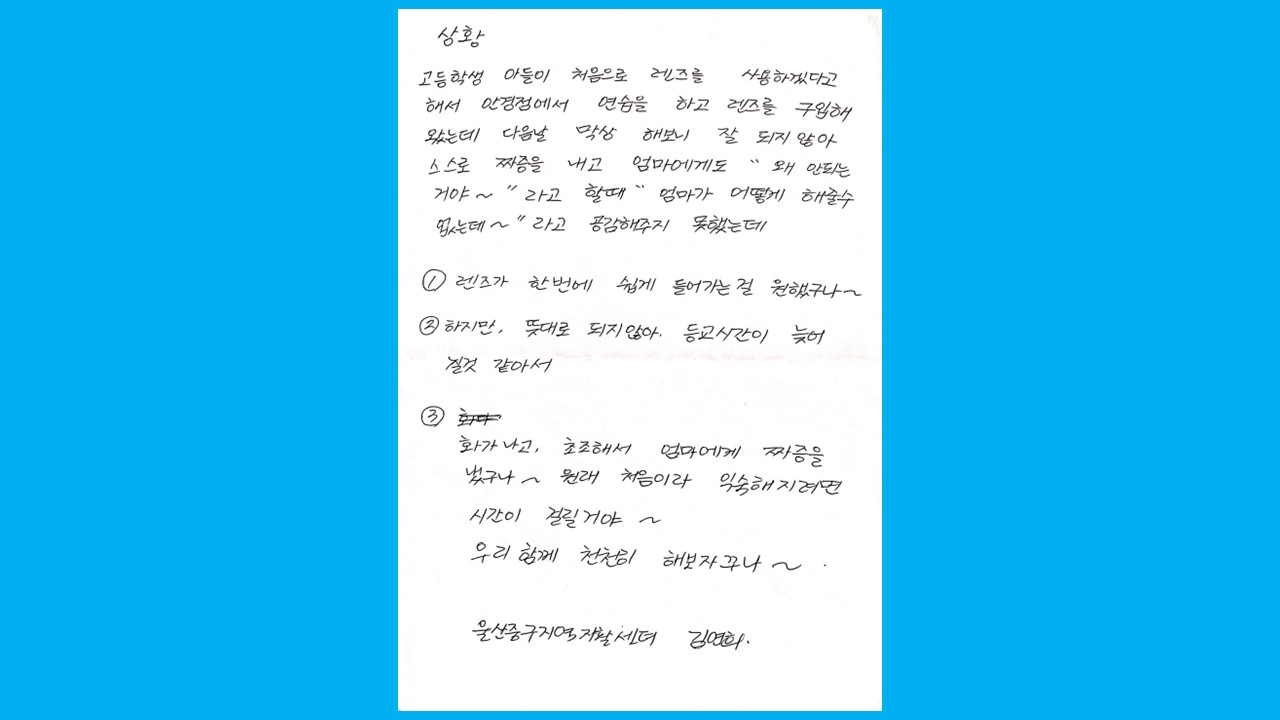 상황
고등학생 아들이 처음으로 렌즈를 사용하겠다고
해서 안경점에서 연습을 하고 렌즈를 구입해
왔는데 다음날 막상 해보니 잘 되지 않아
스스로 짜증을 내고 엄마에게도 " 왜 안되는
거야~ " 라고 할때 " 엄마가 어떻게 해줄수
없는데~ " 라고 공감해주지 못했는데
① 렌즈가 한번에 쉽게 들어가는걸 원했구나~
② 하지만, 뜻대로 되지않아. 등교시간이 늦어
질것 같아서
③
화가나고, 초조해서 엄마에게 짜증을
냈구나~ 원래 처음이라 익숙해지려면
시간이 걸릴거야 ~
우리 함께 천천히 해보자꾸나~ .
울산중구지역자활센터 김연희.